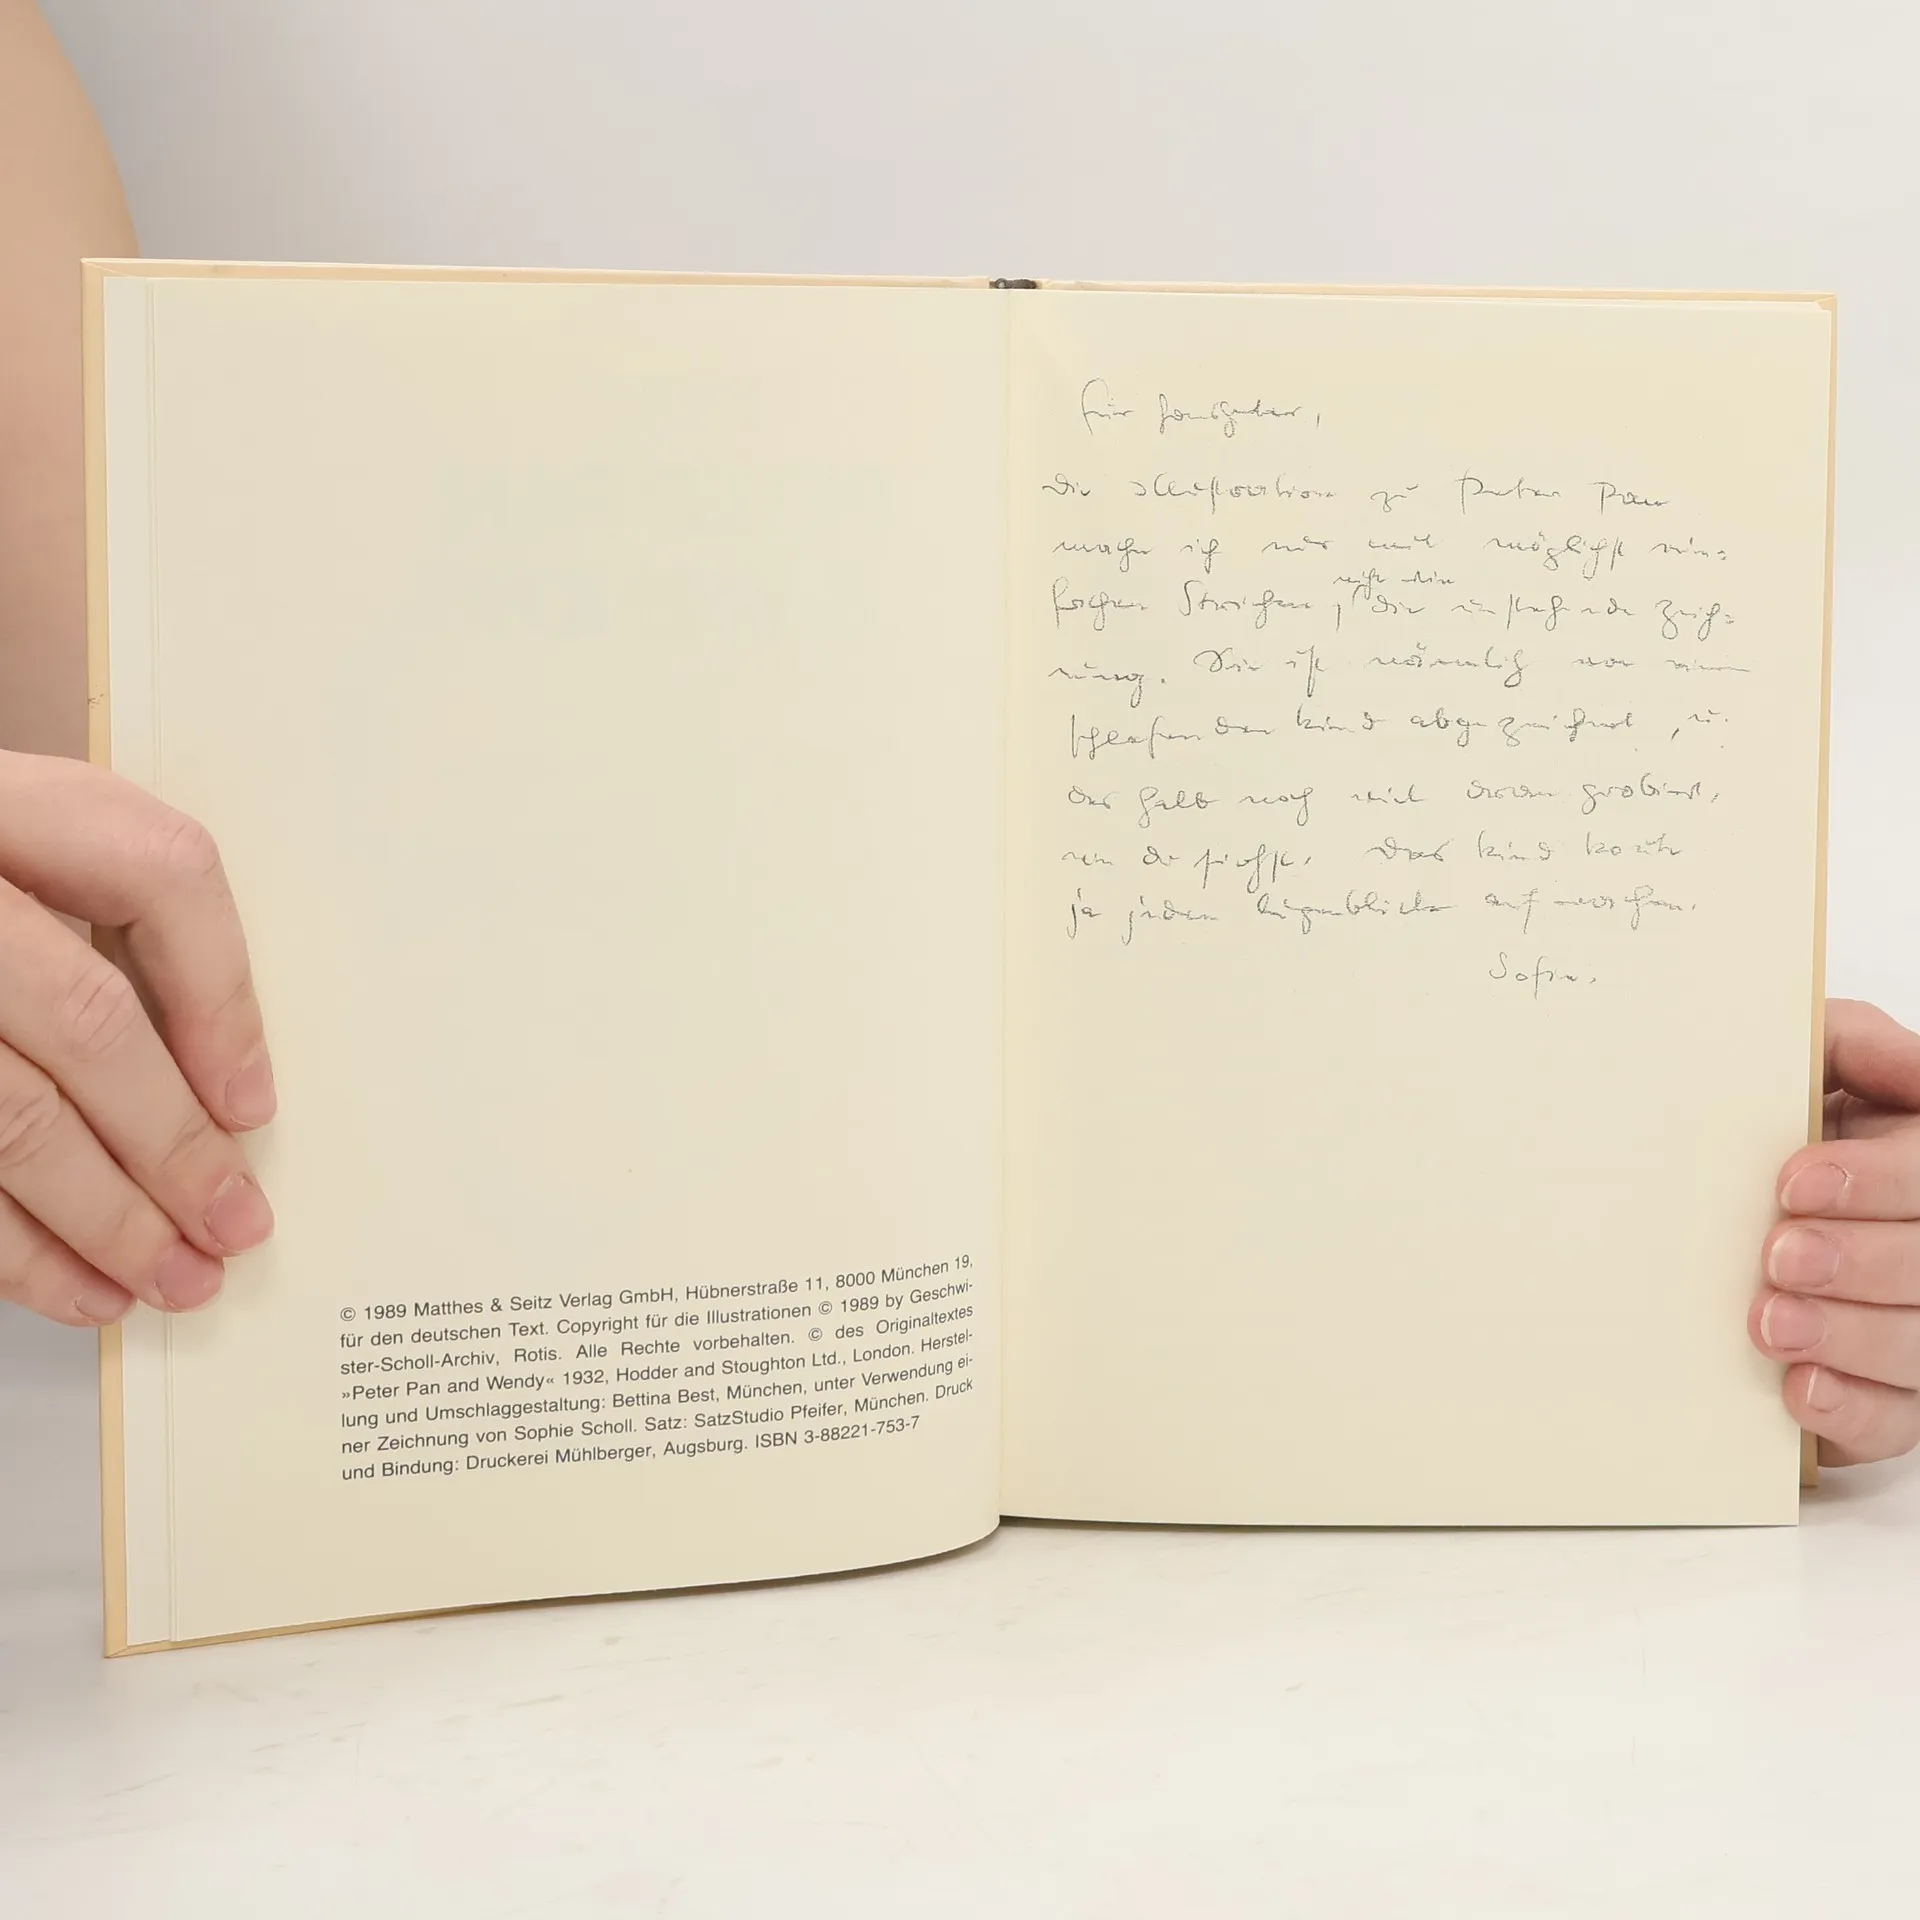 © 1989 Matthes & Seitz Verlag GmbH, Hübnerstraße 11, 8000 München 19,
für den deutschen Text. Copyright für die Illustrationen © 1989 by Geschwi-
ster-Scholl-Archiv, Rotis. Alle Rechte vorbehalten. © des Originaltextes
»Peter Pan and Wendy« 1932, Hodder and Stoughton Ltd., London. Herstel-
lung und Umschlaggestaltung: Bettina Best, München, unter Verwendung ei-
ner Zeichnung von Sophie Scholl. Satz: SatzStudio Pfeifer, München. Druck
und Bindung: Druckerei Mühlberger, Augsburg. ISBN 3-88221-753-7
für
die Illustration zu Peter Pan
mache ich nur mit möglichst ein=
nicht wie
fachen Strichen, die umstehende Zeich=
nung. Sie ist nämlich von einem
schlafenden Kind abgezeichnet, u.
deshalb noch viel daran probiert,
wie du siehst. Das Kind konnte
ja jeden Augenblick aufwachen.
Sofie.